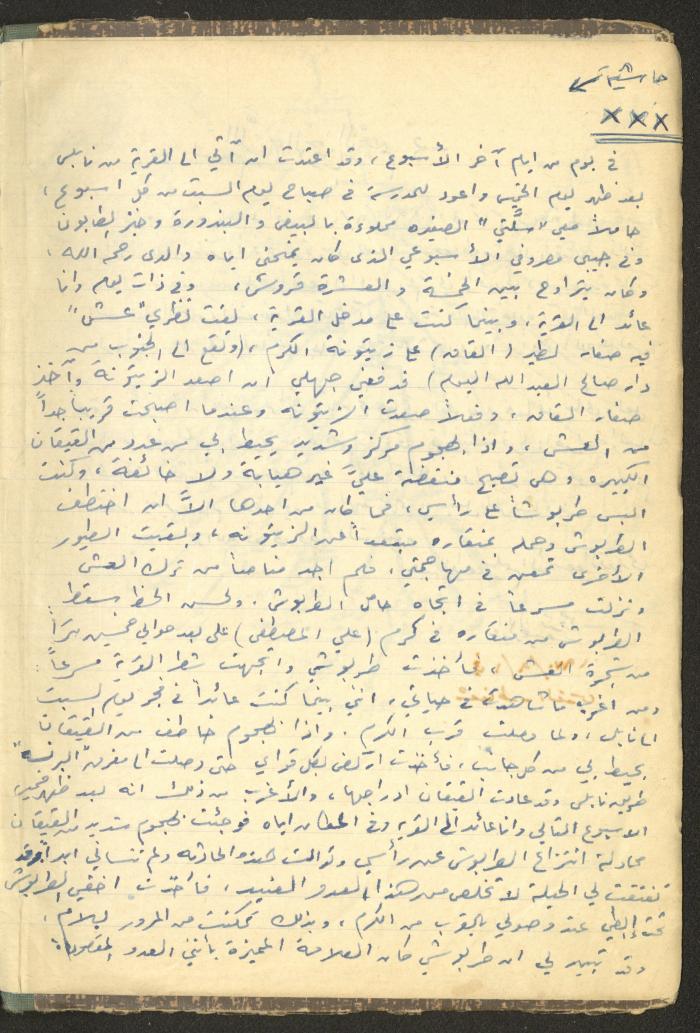 حاشية
×××
في يوم من ايام آخر الأسبوع، وقد اعتدت ان آتي الى القرية من نابلس
بعد ظهر يوم الخميس واعود للمدرسة في صباح يوم السبت من كل اسبوع،
حاملاً معي "سلّتي" الصغيره مملوءة بالبيض والبندورة وخبز الطابون
وفي جيبي مصروفي الأسبوعي الذي كان يمنحني اياه والدي رحمه الله،
وكان يتراوح بين الخمسة والعشرة قروش، وفي ذات يوم وانا
عائد الى القرية، وبينما كنت على مدخل القرية، لفت نظري "عش"
فيه صغار لطير (القاق) على زيتونة الكرم، (وتقع الى الجنوب من
دار صالح العبد الله اليوم) فدفعني جهلي ان اصعد الزيتونة وآخذ
صغار القاق، وفعلاً صعدت الزيتونه وعندما اصبحت قريباً جداً
من العش، واذا بهجوم مركز وشديد يحيط بي من عدد من القيقان
الكبيره وهي تصيح منقضة عليّ غير هيابة ولا خائفة، وكنت
البس طربوشاً على رأسي، فما كان من احدها الاّ ان اختطف
الطربوش وحمله بمنقاره مبتعداً عن الزيتونه، وبقيت الطيور
الأخرى تمعن في مهاجمتي، فلم اجد مناصاً من ترك العش
ونزلت مسرعاً في اتجاه حامل الطربوش. ولحسن الحظ سقط
الطربوش من منقاره في كرم (علي المصطفى) على بعد حوالي خمسين متراً
من شجرة العش، فأخذت طربوشي واتجهت شطر القرية مسرعاً.
ومن اغرب ما شاهدت في حياتي، انني بينما كنت عائداً في فجر يوم السبت
الى نابلس، ولما وصلت قرب الكرم. واذا بهجوم خاطف من القيقان
يحيط بي من كل جانب، فأخذت اركض بكل قواي حتى وصلت الى مفرق "البرنسه"
طريق نابلس وقد عادت القيقان ادراجها، والأغرب من ذلك انه بعد ظهر خميس
الاسبوع التالي وانا عائد الى القرية وفي المكان اياه فوجئت بهجوم شديد من القيقان
محاولة انتزاع الطربوش عن رأسي وتوالت هذه الحادثه ولم تنساني ابداً وقد
تفتقت لي الحيلة لاتخلص من هذا العدو العنيد، فأخذت اخفي الطربوش
تحت إبطي عند وصولي بالقرب من الكرم، وبذلك تمكنت من المرور بسلام.
وقد تبين لي ان طربوشي كان العلامة المميزة بأنني العدو المقصود.